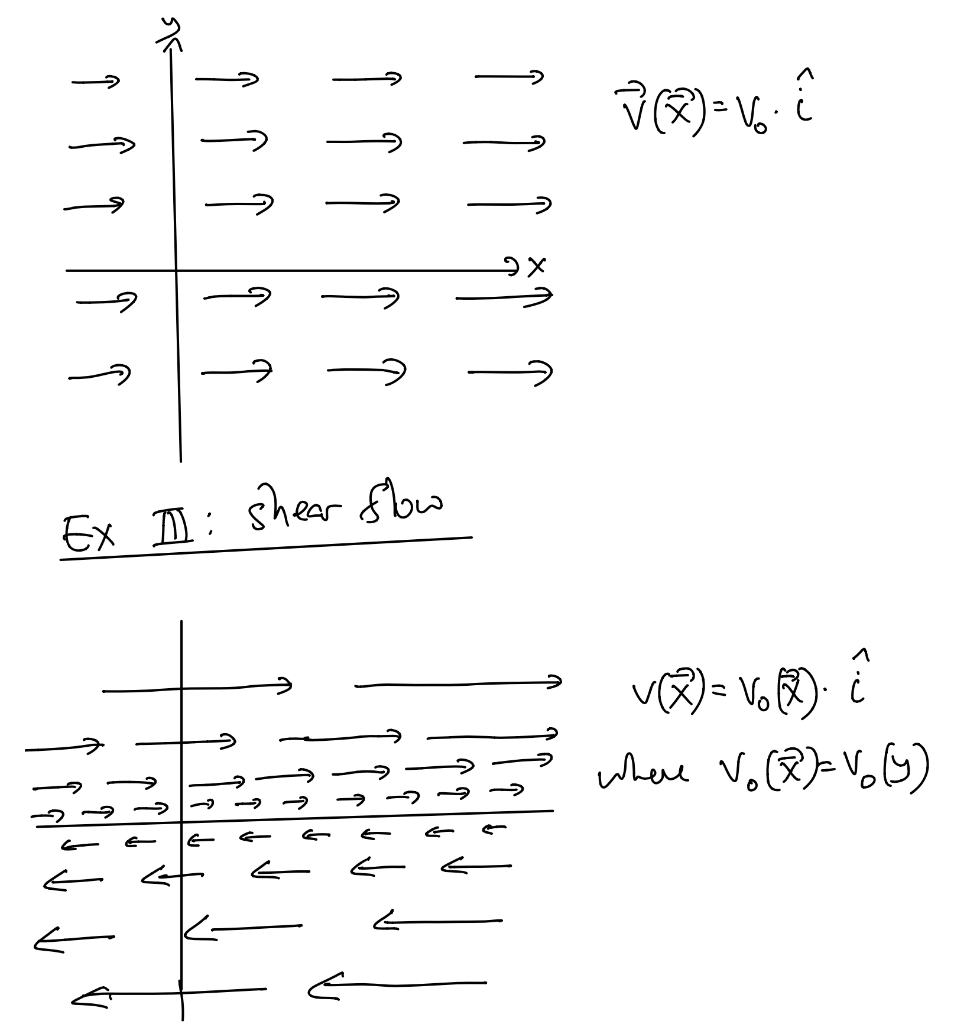 y
v⃗(x⃗)=v₀·î
x
Ex III: shear flow
v(x⃗)=v₀(x⃗)·î
where v₀(x⃗)=v₀(y)